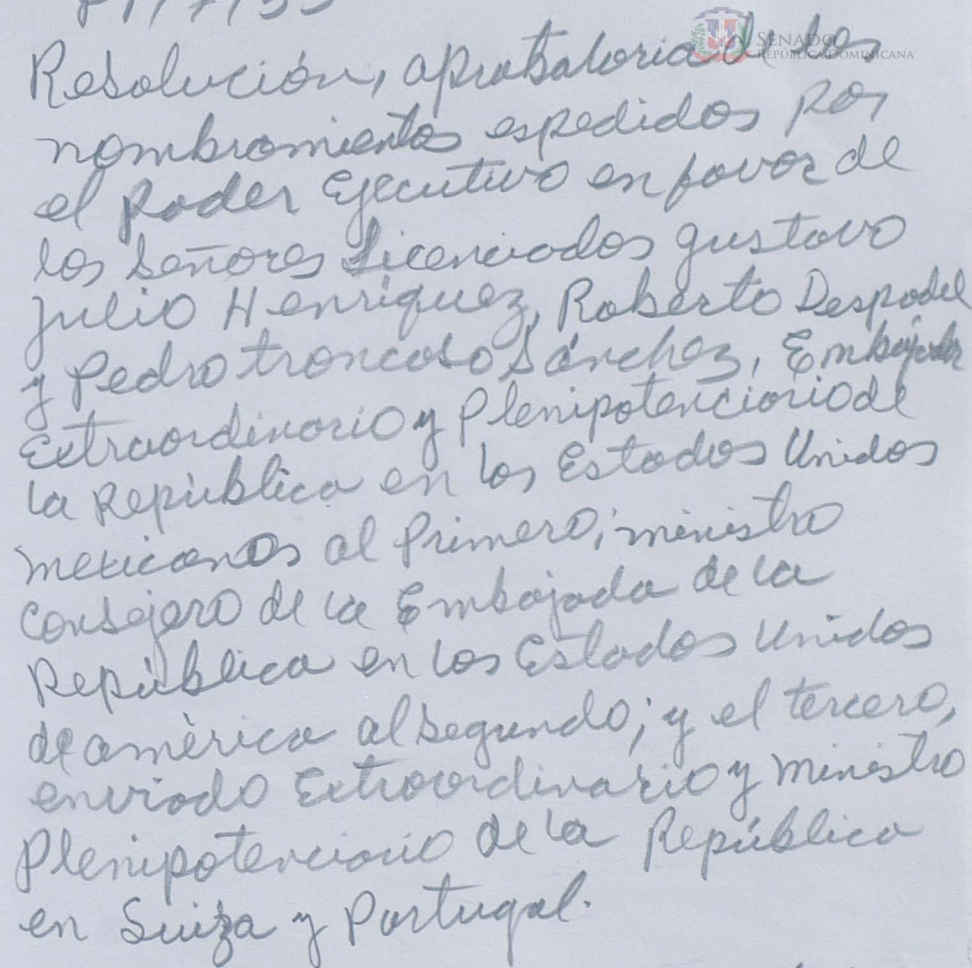 SENADO
REPÚBLICA DOMINICANA
Resolución, aprobatoria de los
nombramientos espedidos por
el Poder Ejecutivo en favor de
los Señores Licenciados Gustavo
Julio Henríquez, Roberto Despradel
y Pedro troncoso Sánchez, Embajador
Extraordinario y Plenipotenciario de
la República en los Estados Unidos
mexicanos al Primero; ministro
Consejero de la Embajada de la
República en los Estados Unidos
de américa al segundo; y el tercero,
enviado Extraordinario y Ministro
Plenipotenciario de la República
en Suiza y Portugal.